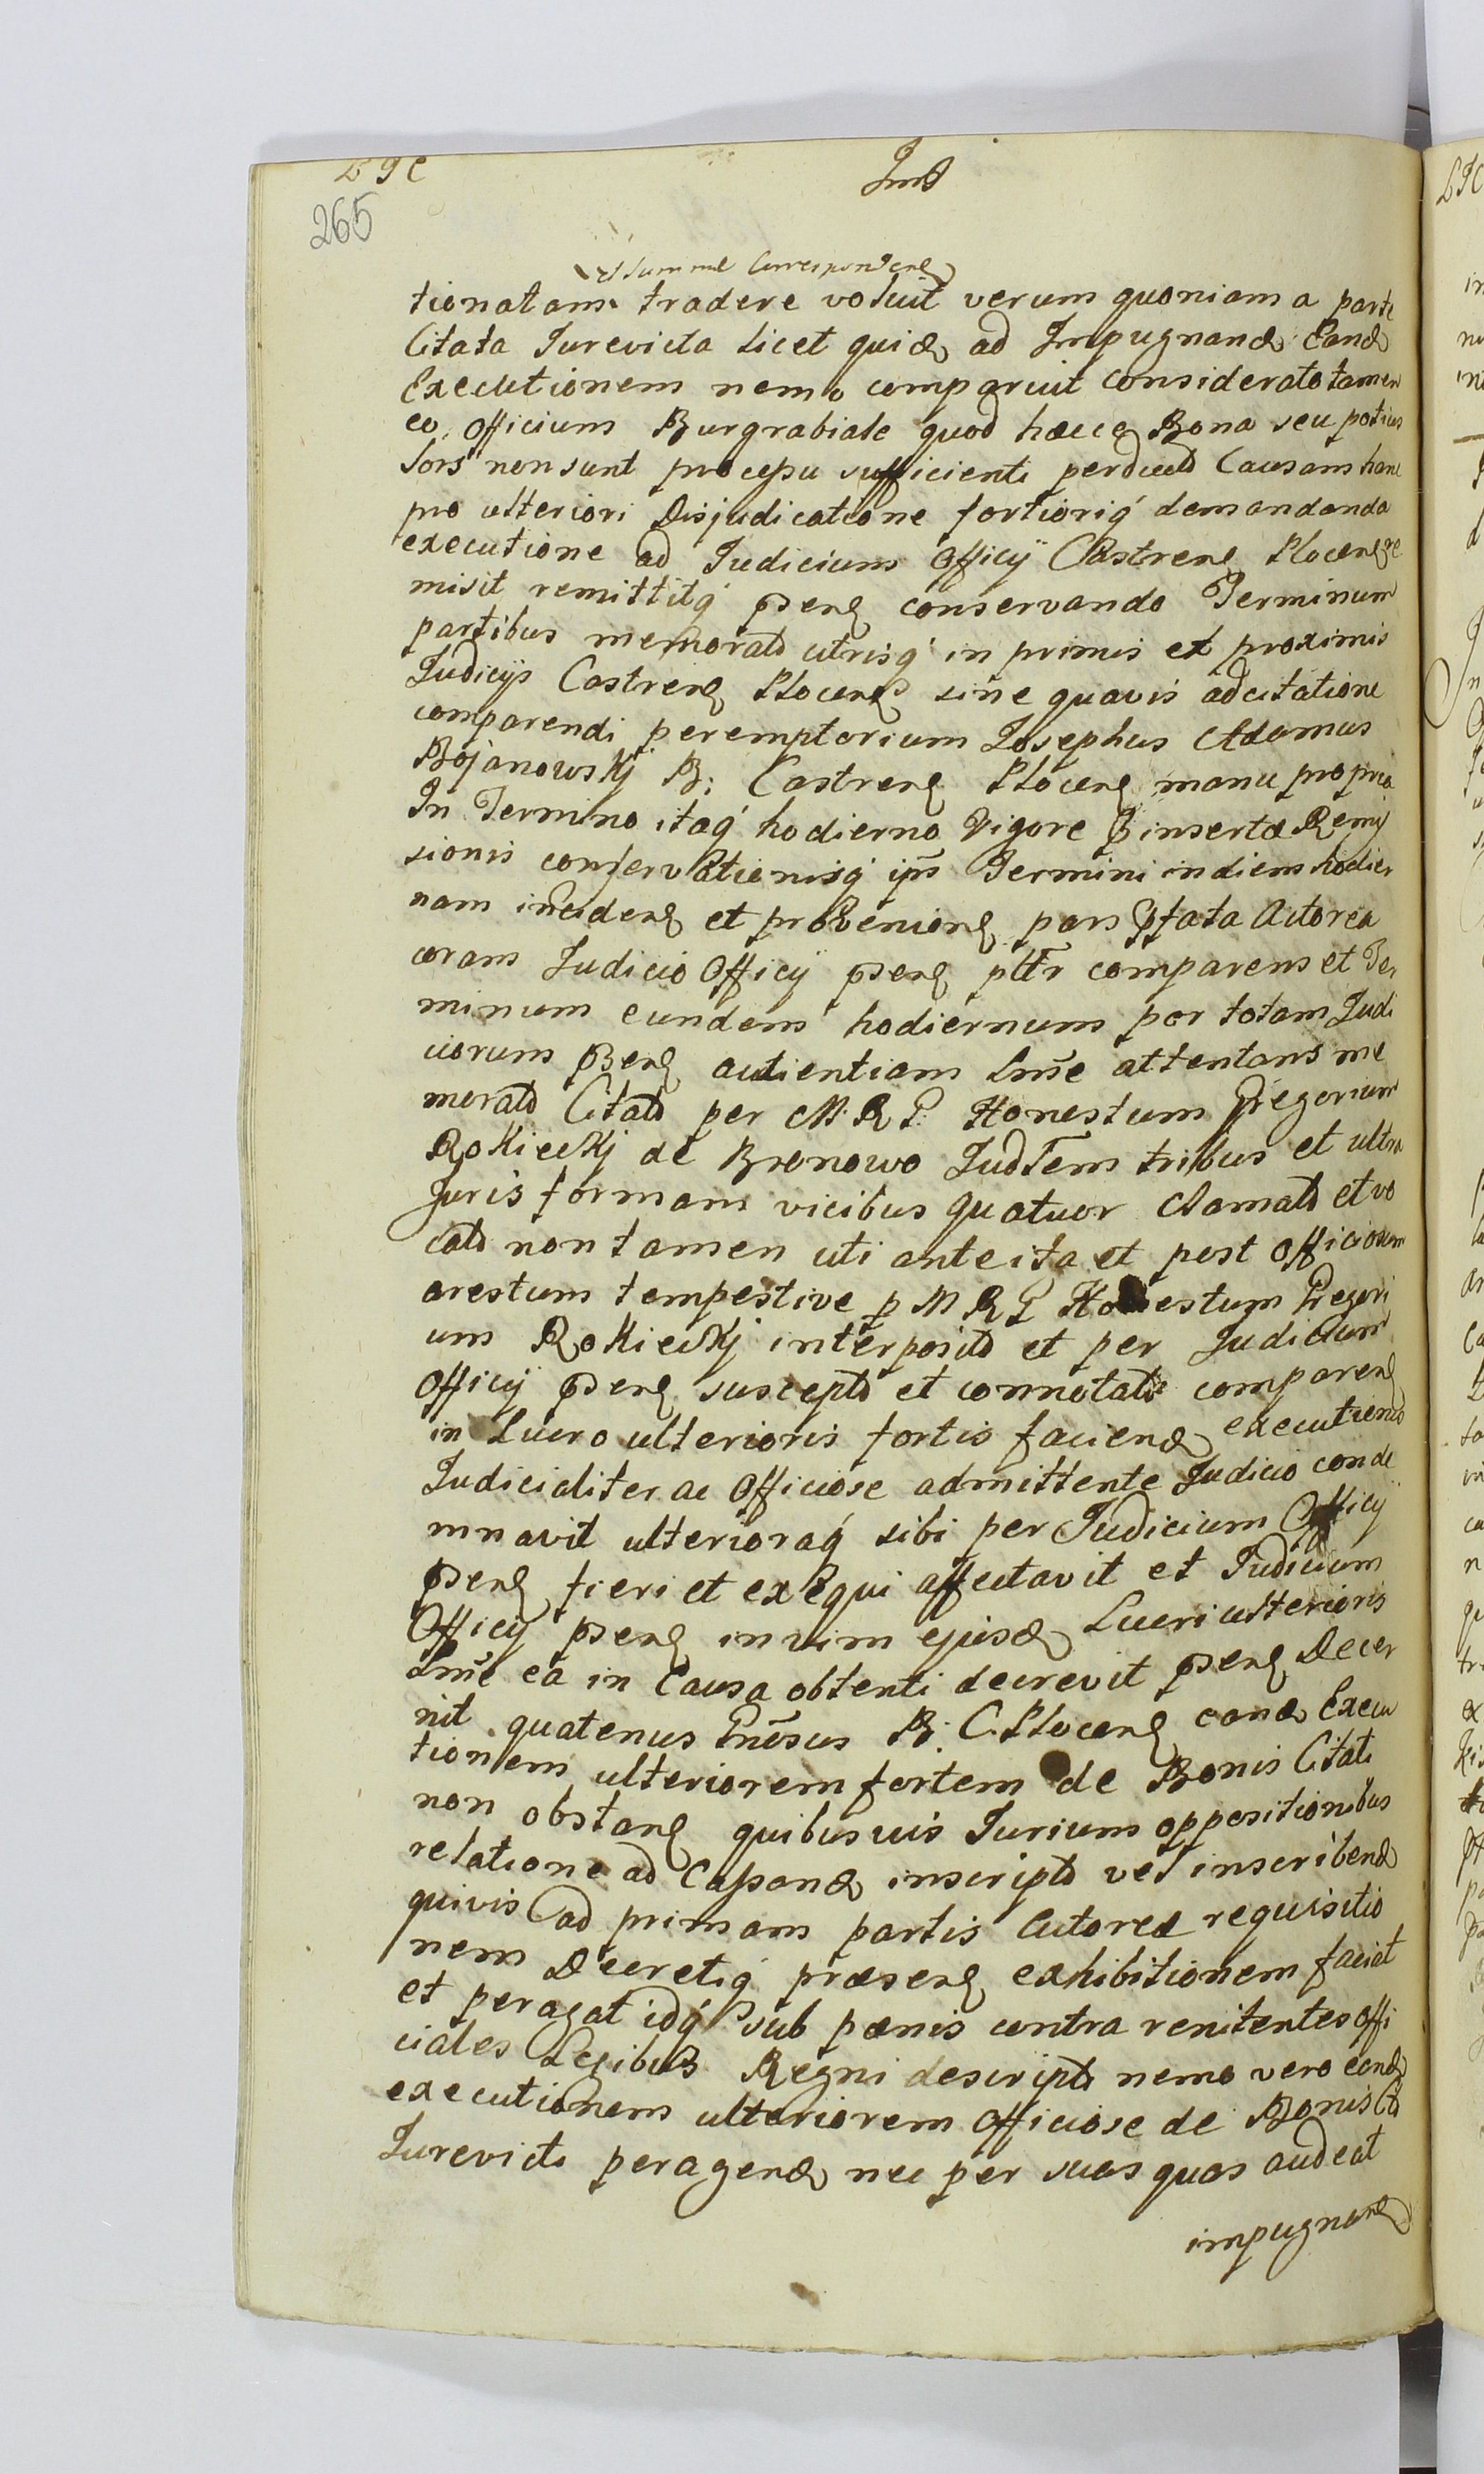 L J C
Ind
265
et Summae Correspondenꝭ
tionatam tradere voluit verum quoniam a parte
Citata Jurevicta licet quid ad Impugnand Eand
Executionem nemo comparuit considerato tamen
eo Officium Burgrabiale quod haecce Bona seu potius
Sors non sunt processu sufficienti perducta Causam hanc
pro ulteriori Disjudicatione fortioriq demandanda
executione ad Judicium Officÿ Castrenꝭ Plocenꝭ re
misit remittitq pꝛsenꝭ conservando Terminum
partibus memoratis utrisq in primis et proximis
Judicÿs Castrenꝭ Plocenꝭ sine quavis adcitatione
comparendi peremptorium Josephus Adamus
Bojanowskj B: Castrenꝭ Plocenꝭ manu propria
In Termino itaq hodierno Vigore pinsertae Remis
sionis conservationisq ips Termini in diem hodier
nam incidenꝭ et provenienꝭ pars pfata Actorea
coram Judicio Officÿ pꝛsenꝭ pltr comparens et Ter
minum eundem hodiernum per totam Judi
ciorum pꝛsenꝭ autientiam Lm̃e attentans me
morats Citats per M. R. G. Honestum Gregorium
Rokieckj de Bronowo Judtem tribus et ultra
Juris formam vicibus quatuor clamats et vo
cats non tamen uti ante ita et post Officiosum
arestum tempestive p M R G Honestum Gregori
um Rokieckj interposits et per Judicium
Officÿ pꝛsenꝭ suscepts et connotats comparenꝭ
in Lucro ulterioris fortis faciend executionis
Judicialiter ac Officiose admittente Judicio conde
mnavit ulterioraq sibi per Judicium Officÿ
pꝛsenꝭ fieri et exequi affectavit et Judicium
Officÿ pꝛsenꝭ in vim ejusd Lucri ulterioris
Lm̃e ea in Causa obtenti decrevit pꝛsenꝭ Decer
nit quatenus Gn̄osus B. C. Plocenꝭ eand Execu
tionem ulteriorem fortem de Bonis Citati
non obstanꝭ quibusvis Jurium oppositionibus
relatione ad Cassand inscripts vel inscribend
quivis ad primam partis Actoreae requisitio
nem Decretiq praesenꝭ exhibitionem faciat
et peragat idq sub poenis contra renitentes Offi
ciales Legibus Regni descripts nemo vero eand
executionem ulteriorem Officiose de Bonis Cts
Jurevicti peragend nec per suas quas audeat
impugnare